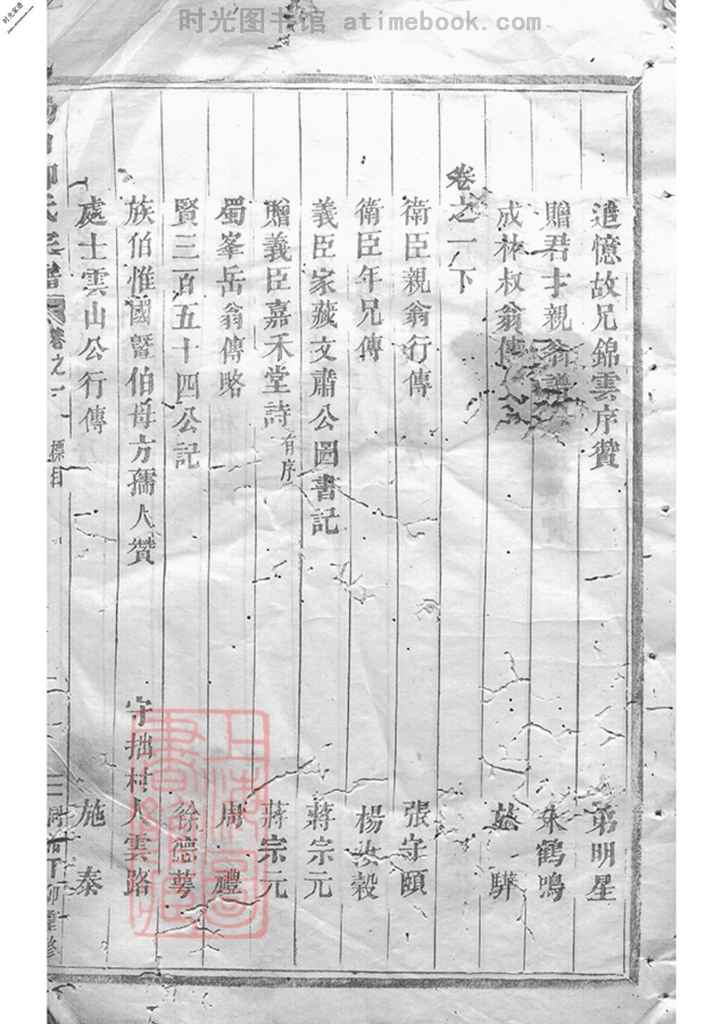 时光图书馆 atimebook.com
追憶故兄錦雲序贊 弟明星
贈君才親翁 朱鶴鳴
成林叔翁傳 驊
卷之一下
衛臣親翁行傳 張守頤
衛臣年兄傳 楊汝穀
義臣家藏文肅公圖書記 蔣宗元
贈義臣嘉禾堂詩有序 蔣宗元
蜀峯岳翁傳略 周禮
賢三百五十四公記 徐德
族伯惟國暨伯母方孺人贊 守拙村人雲路
處士雲山公行傳 施泰
氏 譜 卷之一 標目